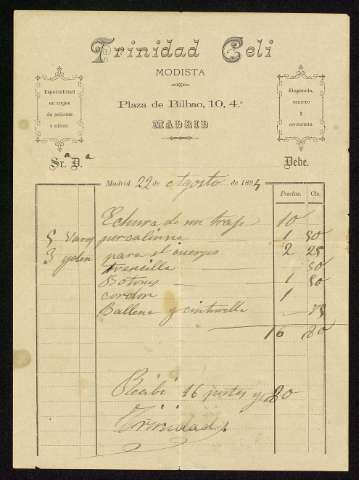 Trinidad Celi
MODISTA
Plaza de Bilbao, 10, 4.º
MADRID
Especialidad
en trajes
de señoras
y niños
Elegancia,
esmero
y
economía
Sr.ª D.ª
Debe.
Madrid 22 de Agosto de 189
Pesetas. Cts.
Echura de un traje 10
5 varas percalinna 1 50
3 para el cuerpo 2 25
trencilla 50
Botones 1 50
cordon 1
Ballena y cinturilla
16 80
Recibi 16 pesetas y 80
Trinidad